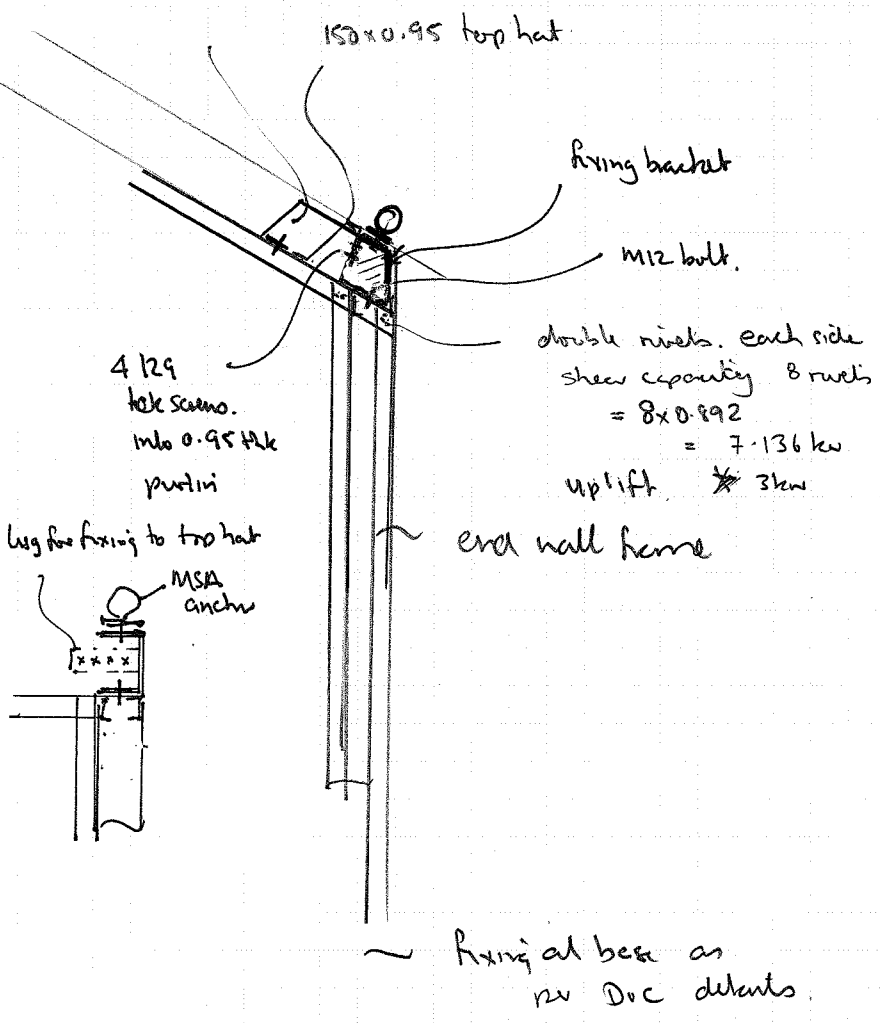 150x0.95 top hat
fixing bracket
M12 bolt.
double rivets. each side
shear capacity 8 rivets
= 8x0.892
= 7.136 kw
uplift 3kw
4 12g
tek screws.
into 0.95 thk
purlin
lug for fixing to top hat
MSA
anchor
end wall frame
fixing at base as
per DoC details.